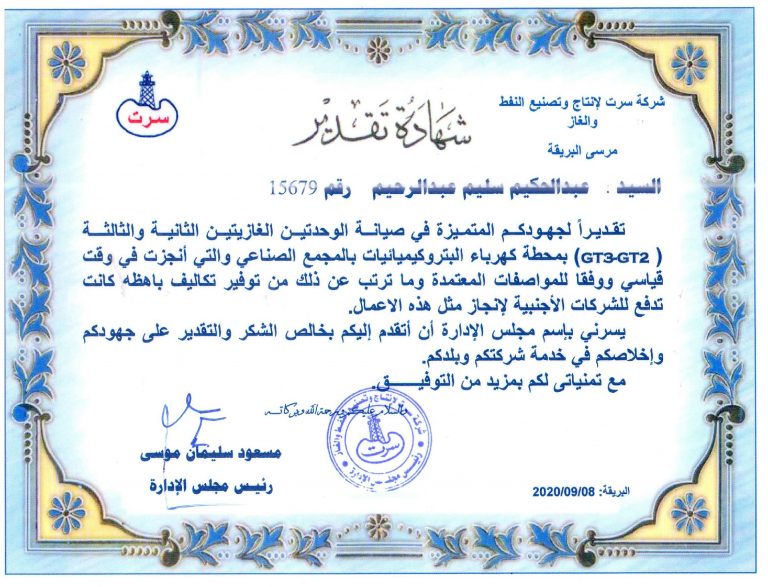 شركة سرت لإنتاج وتصنيع النفط
والغاز
مرسى البريقة
سرت
شهادة تقدير
السيد : عبدالحكيم سليم عبدالرحيم رقم 15679
تقديراً لجهودكم المتميزة في صيانة الوحدتين الغازيتين الثانية والثالثة
( GT3-GT2) بمحطة كهرباء البتروكيميائيات بالمجمع الصناعي والتي أنجزت في وقت
قياسي ووفقا للمواصفات المعتمدة وما ترتب عن ذلك من توفير تكاليف باهظه كانت
تدفع للشركات الأجنبية لإنجاز مثل هذه الاعمال.
يسرني بإسم مجلس الإدارة أن أتقدم إليكم بخالص الشكر والتقدير على جهودكم
وإخلاصكم في خدمة شركتكم وبلدكم.
مع تمنياتى لكم بمزيد من التوفيـــــق.
والسلام عليكم ورحمة الله وبركاته
شركة سرت لإنتاج وتصنيع النفط والغاز
سرت
رئيس مجلس الإدارة
مسعود سليمان موسى
رئيس مجلس الإدارة
البريقة: 2020/09/08